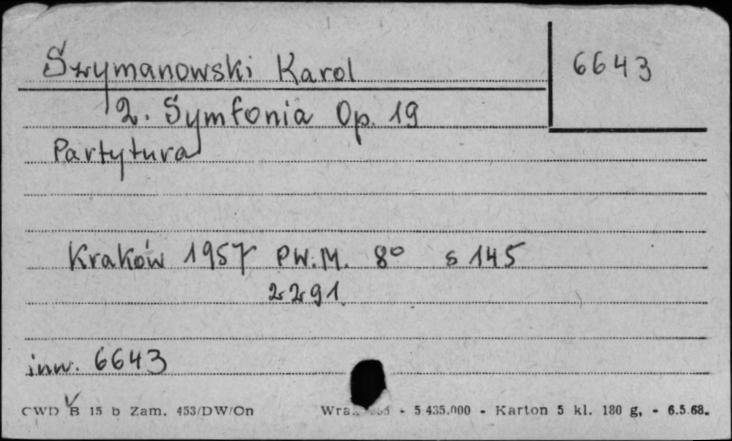 Szymanowski Karol
6643
2. Symfonia Op. 19
Partytura
Kraków 1957 PW.M. 8° s 145
2291
inw. 6643
CWD B 15 b Zam. 453/DW/On - 5.435.000 - Karton 5 kl. 180 g, - 6.5.68.